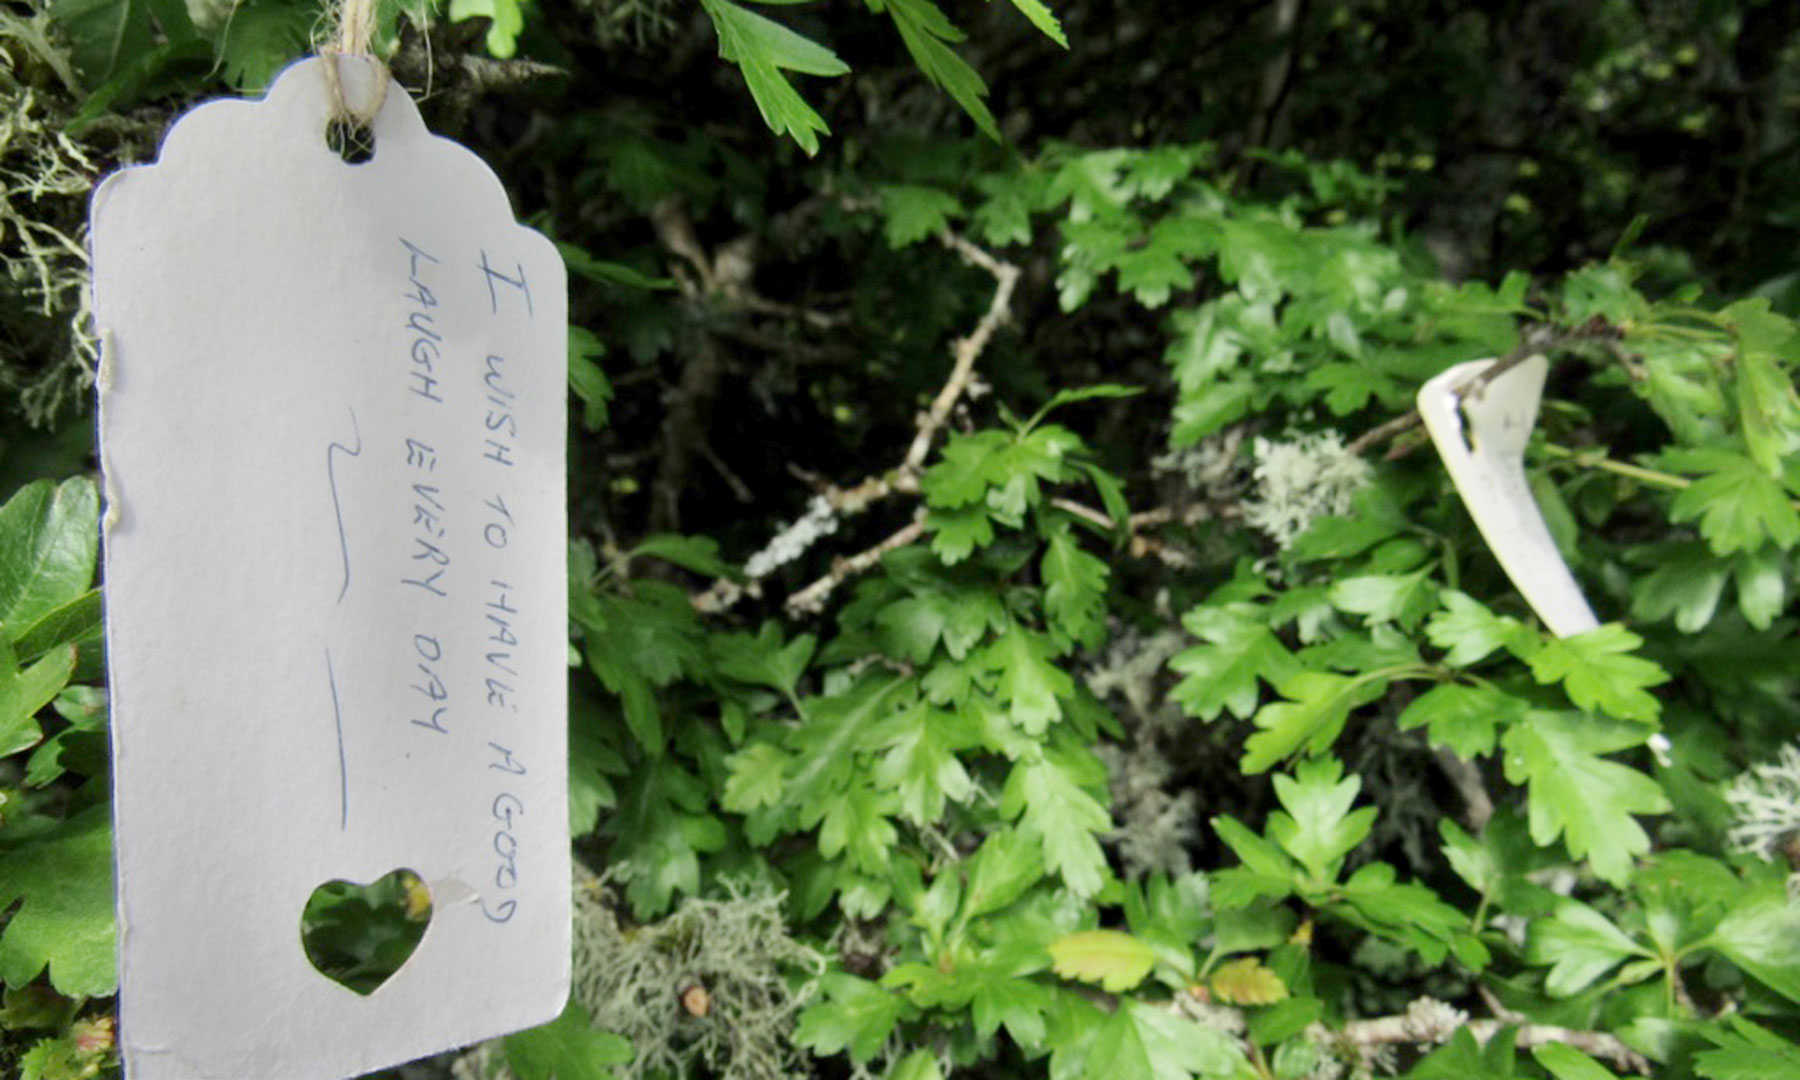 I WISH TO HAVE A GOOD
LAUGH EVERY DAY